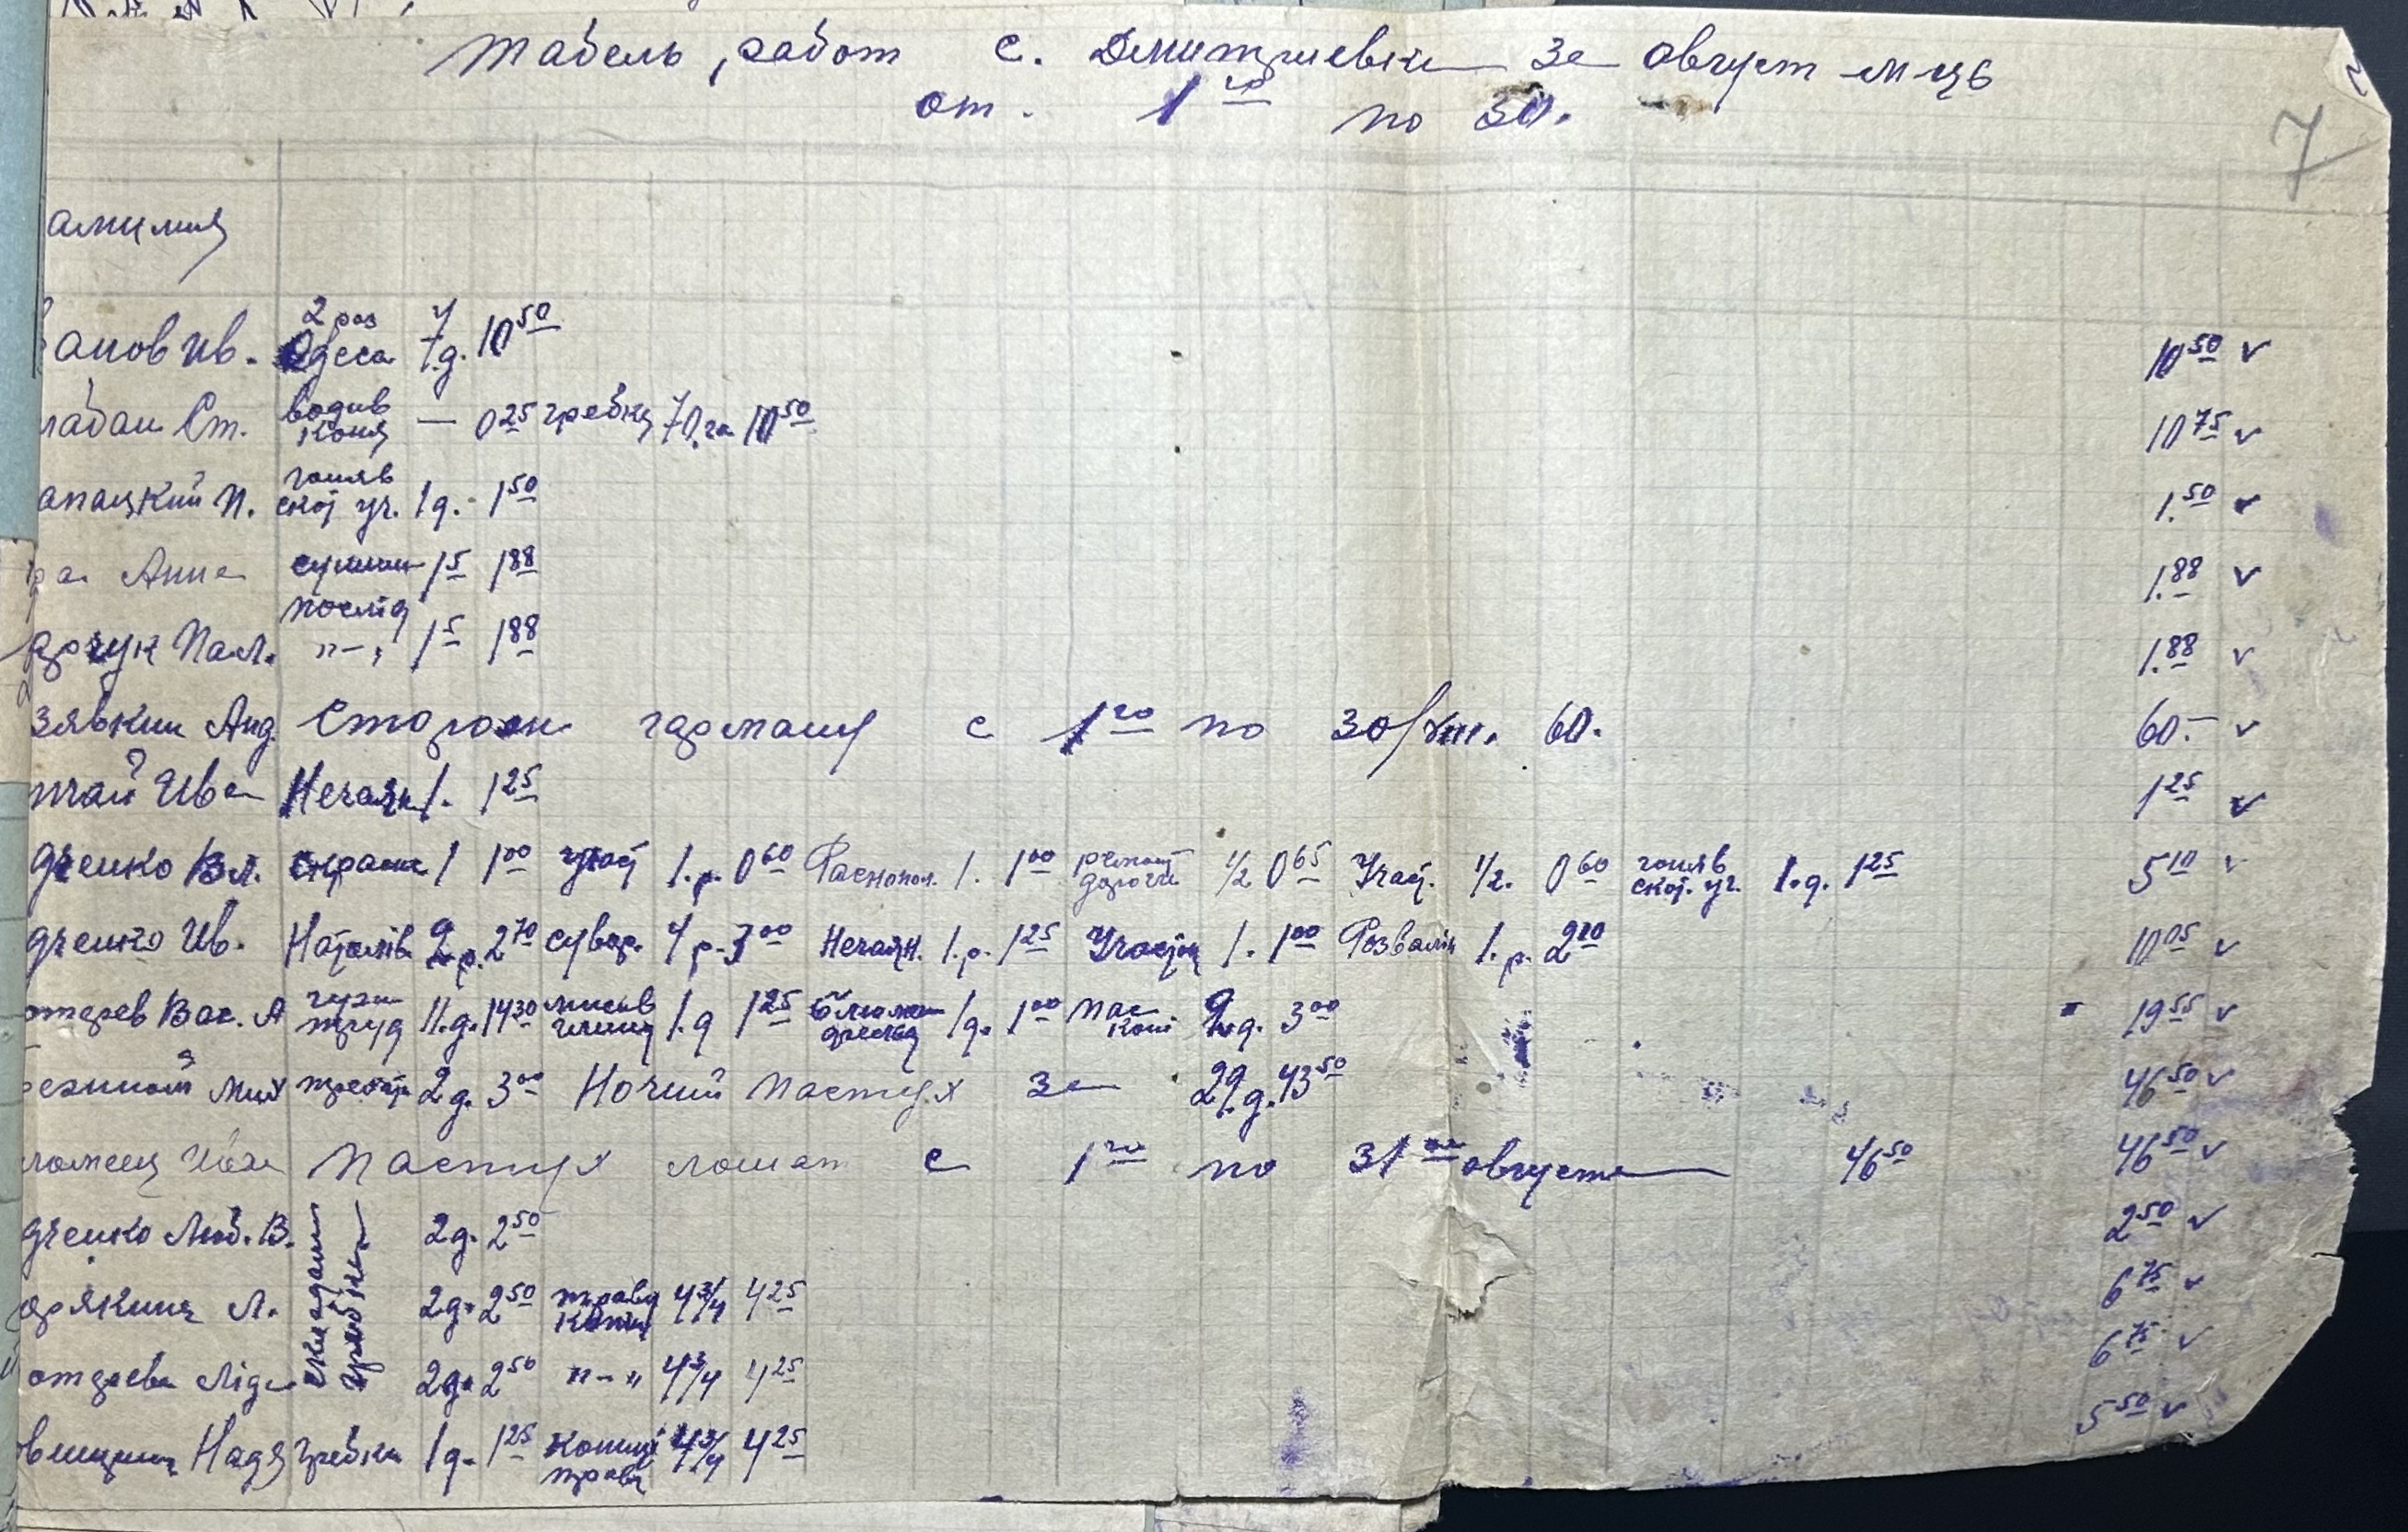 Табель работ с. Дмитриевки за август м-ць
от. 1го по 30.
7
амилия
анов Ив. 2 раз Одеса 7 д. 10 50 10 50 v
лабан Ст. водив коня — 0 25 гребку 70 га 10 50 10 75 v
апацкий П. гоняв скот уч. 1 д. - 1 50 1.50 v
ра Анна сушили послід 1 5 1 88 1.88 v
арчук Пал. "-" 1 5 1 88 1.88 v
зявкин Анд. Сторож гарману с 1го по 30/VIII. 60. 60.- v
тчай Ива Нечаян 1. 1 25 1 25 v
дченко Вл. 1 1 00 1.р. 0 60 1. 1 00 ремонт дороги 1/2 0 65 Учас. 1/2. 0 60 гоняв скот. уч. 1.д. 1 25 5 10 v
дченко Ив. Наталів 2.р. 2 70 сувор. 4 р. 3 00 Нечаян. 1.р. 1 25 Участок 1. 1 00 Розвалін 1.р. 2 10 10 05 v
отарев Вас. А 11.д. 14 30 1.д 1 25 1д. 1 00 пас коні 2.д. 3 00 19 55 v
езний Мих 2 д. 3 00 Ночний пастух за 29.д. 43 50 46 50 v
Пастух лошат с 1го по 31го августа 46 50 46 50 v
дченко Люб. В. складали гребки 2д. 2 50 2 50 v
арякина Л. 2д. 2 50 траву копиц 4 3/4 4 25 6 75 v
отарева Ліда 2д. 2 50 "-" 4 3/4 4 25 6 75 v
Надя гребки 1д. 1 25 копиці трави 4 3/4 4 25 5 50 v